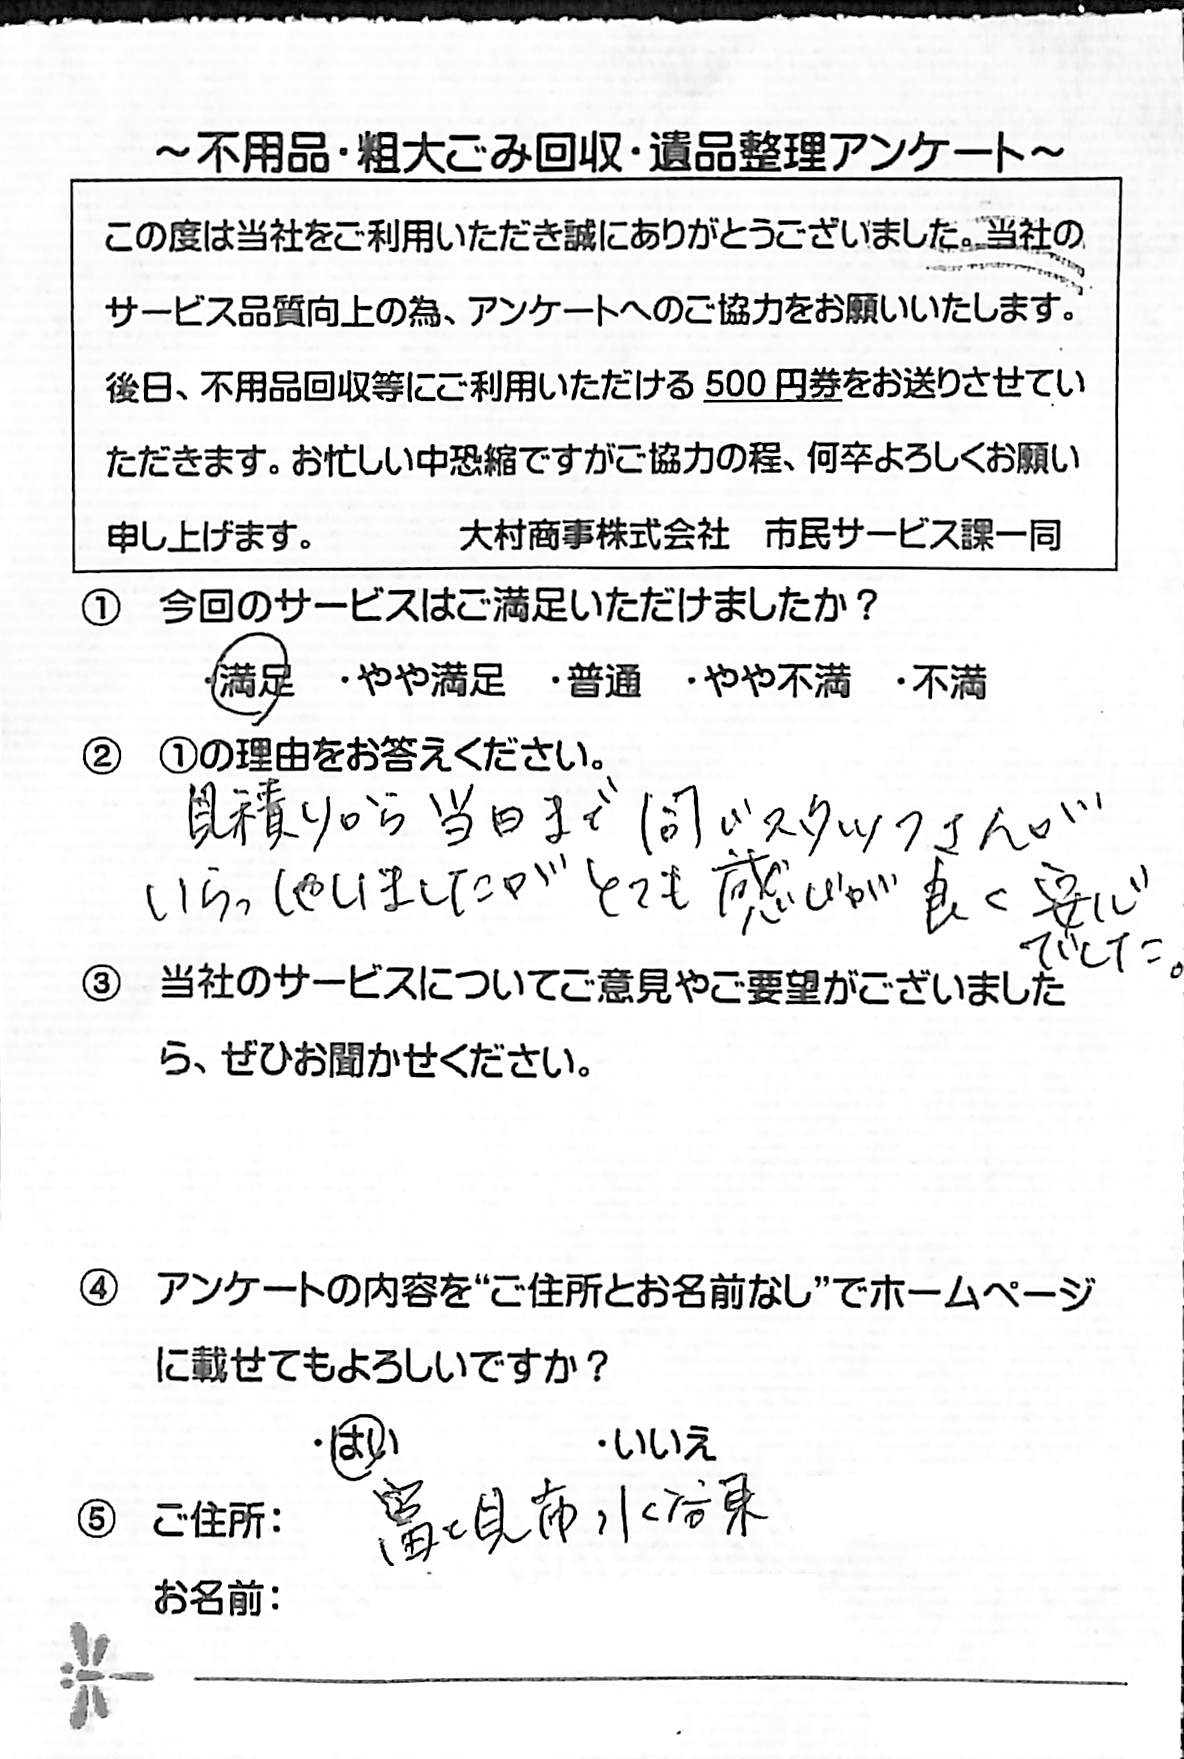 ～不用品・粗大ごみ回収・遺品整理アンケート～
この度は当社をご利用いただき誠にありがとうございました。当社の
サービス品質向上の為、アンケートへのご協力をお願いいたします。
後日、不用品回収等にご利用いただける 500 円券をお送りさせてい
ただきます。お忙しい中恐縮ですがご協力の程、何卒よろしくお願い
申し上げます。 大村商事株式会社 市民サービス課一同
① 今回のサービスはご満足いただけましたか？
・満足 ・やや満足 ・普通 ・やや不満 ・不満
② ①の理由をお答えください。
見積りから当日まで同じスタッフさんが
いらっしゃいましたがとても感じが良く安心
でした。
③ 当社のサービスについてご意見やご要望がございました
ら、ぜひお聞かせください。
④ アンケートの内容を“ご住所とお名前なし”でホームページ
に載せてもよろしいですか？
・はい ・いいえ
⑤ ご住所： 富士見市水谷東
お名前：